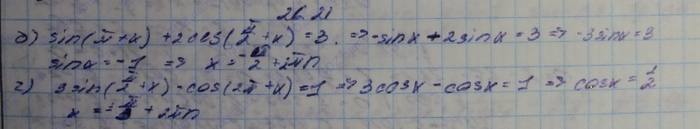 26.21
б) sin(π+x)+2cos(π/2+x)=3. => -sinx+2sinx=3 => -3sinx=3
sinx=-1 => x=-π/2+2πn
г) 3sin(π/2+x)-cos(2π+x)=1 => 3cosx-cosx=1 => cosx=1/2
x=±π/3+2πn